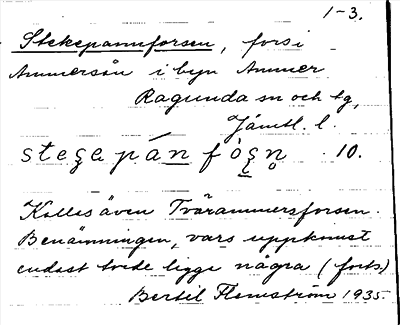 1-3.
Stekepannforsen, fors i
Ammerån i byn Ammer
Ragunda sn och tg,
Jämtl. l.
steʂepán fòʂn̥ 10.
Kallas även Tvärammersforsen.
Benämningen, vars uppkomst
endast torde ligga några (forts.)
Bertil Flemström 1935.